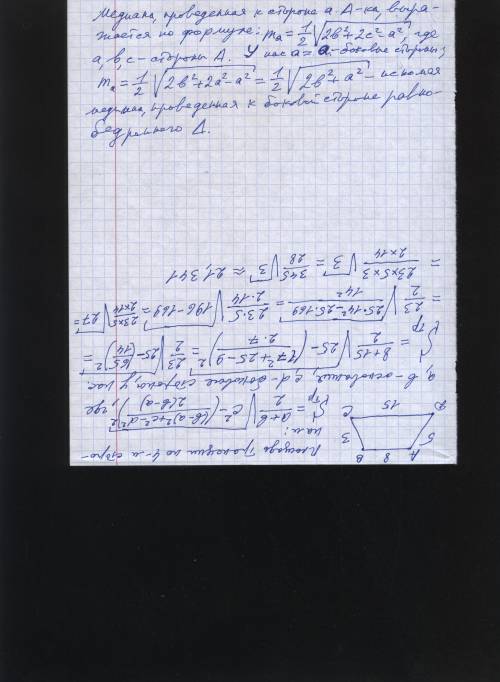 Медиана, проведенная к стороне a Δ-ка, выра-
жается по формуле: mₐ = 1/2 √(2b²+2c²-a²), где
a, b, c - стороны Δ. У нас a = a - боковые стороны;
mₐ = 1/2 √(2b²+2a²-a²) = 1/2 √(2b²+a²) - искомая
медиана, проведенная к боковой стороне равно-
бедренного Δ.
Площадь трапеции по 4-м сторо-
нам:
S тр = (a+b)/2 √(c² - (((b-a)²+c²-d²)/(2(b-a)))²), где
a, b - основания, c, d - боковые стороны, у нас
S тр = (8+15)/2 √(25 - ((7²+25-9)/(2·7))²) = 23/2 √(25 - (65/14)²) =
= 23/2 √((25·14²-25·169)/14²) = (23·5)/(2·14) √(196-169) = (23×5)/(2×14) √27 =
= (23×5×3)/(2×14) √3 = 345/28 √3 ≈ 21,341
B 8 A
3 5
C 15 D